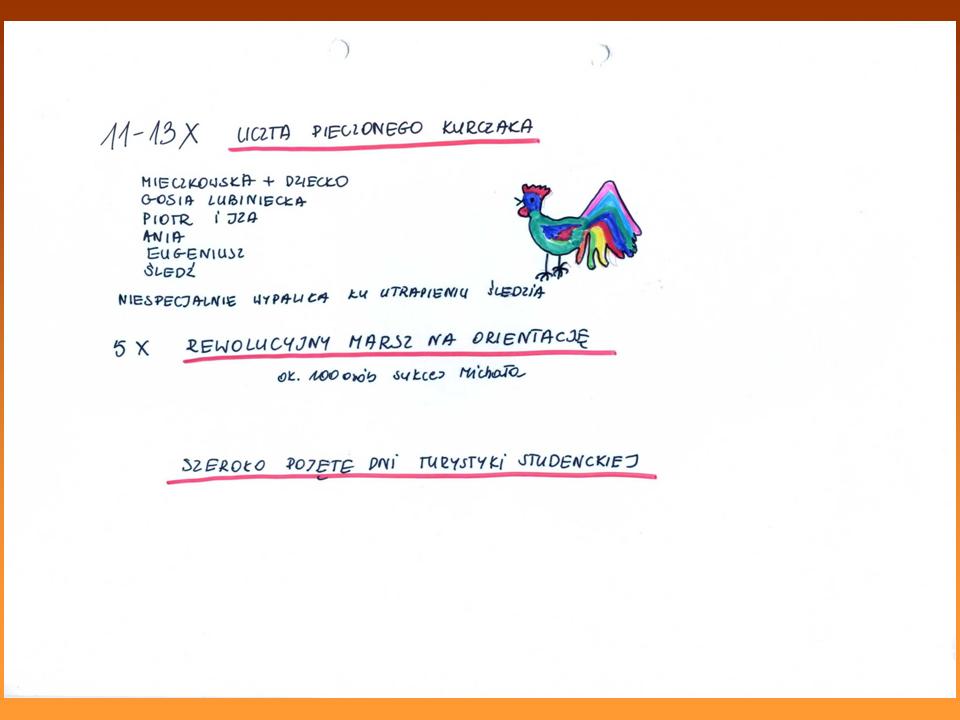 11-13 X UCZTA PIECZONEGO KURCZAKA
MIECZKOWSKA + DZIECKO
GOSIA LUBINIECKA
PIOTR i IZA
ANIA
EUGENIUSZ
ŚLEDŹ
NIESPECJALNIE WYPALIŁA KU UTRAPIENIU ŚLEDZIA
5 X REWOLUCYJNY MARSZ NA ORIENTACJĘ
ok. 1000 osób sukces Michała
SZEROKO POJĘTE DNI TURYSTYKi STUDENCKIEJ